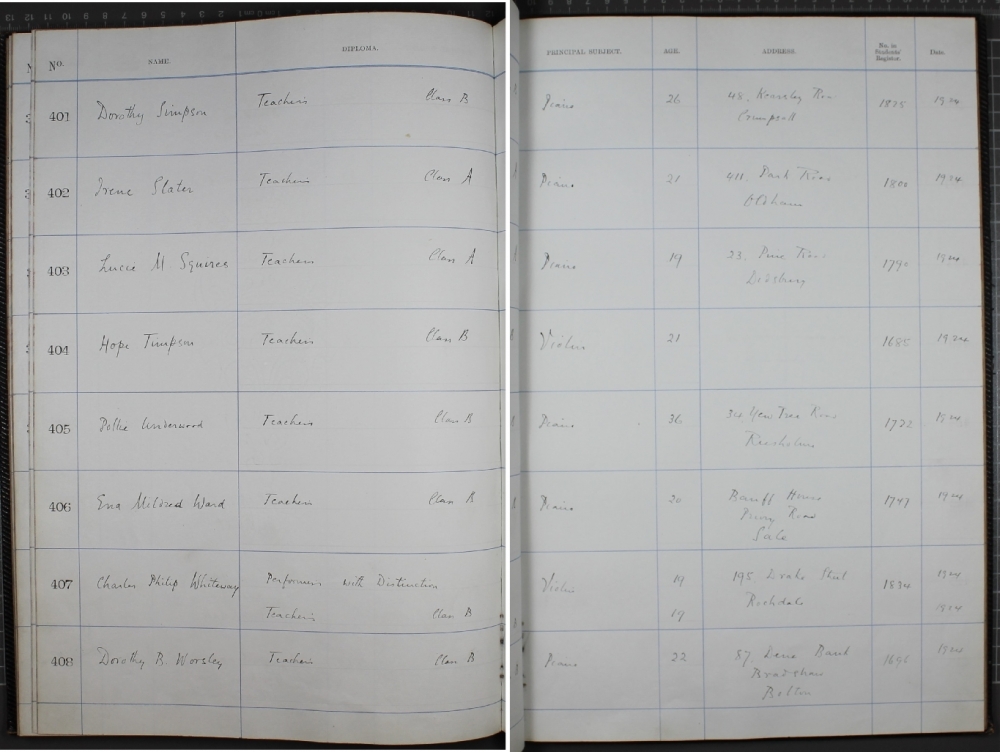 No. NAME. DIPLOMA. PRINCIPAL SUBJECT. AGE. ADDRESS. No. in Students' Register. Date.
401 Dorothy Simpson Teachers Class B Piano 26 48, Road 1825 1924
Crumpsall
402 Irene Slater Teachers Class A Piano 21 411, Park Road 1800 1924
Oldham
403 Lucie M Squires Teachers Class A Piano 19 23, Pine Road 1790 1924
Didsbury
404 Hope Timpson Teachers Class B Violin 21 1685 1924
405 Pollie Underwood Teachers Class B Piano 36 Yew Tree Road 1772 1924
Rusholme
406 Ena Mildred Ward Teachers Class B Piano 20 Banff House 1747 1924
Road
Sale
407 Charles Philip Whiteway Performers with Distinction Violin 19 195 Drake Street 1834 1924
Teachers Class B 19 Rochdale 1924
408 Dorothy B. Worsley Teachers Class B Piano 22 87, Bank 1924
Bradshaw
Bolton